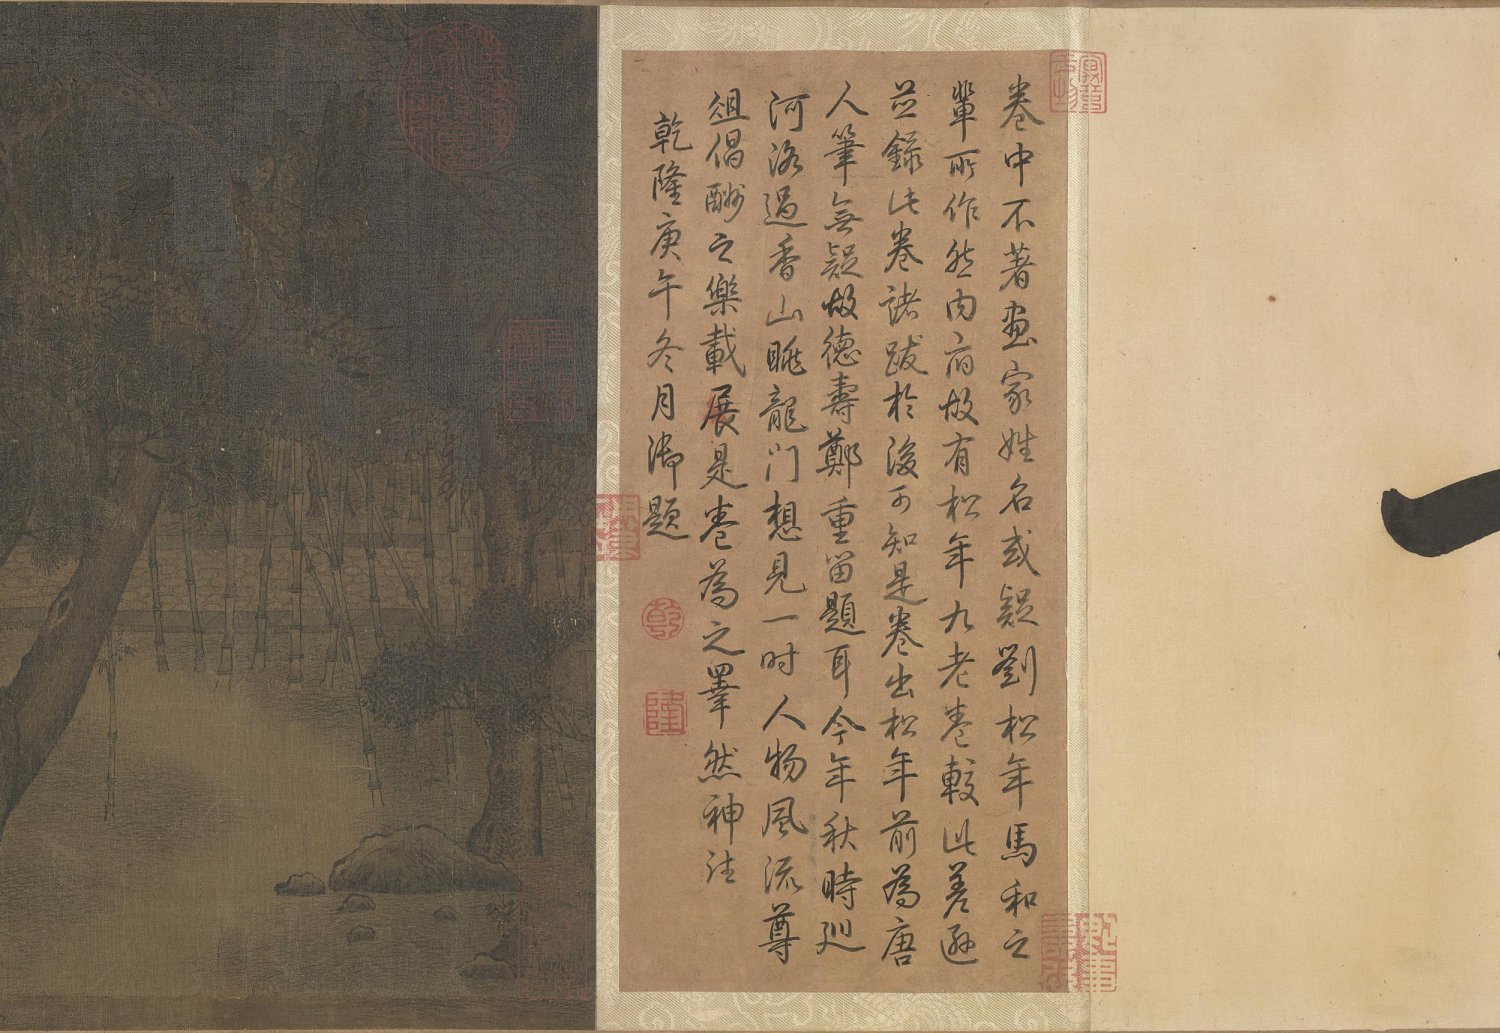 卷中不著畫家姓名或疑劉松年馬和之
輩所作然內府故有松年九老卷較此差遜
並錄此卷諸跋於後可知是卷出松年前為唐
人筆無疑故德壽鄭重留題耳今年秋時巡
河洛過香山眺龍门想見一时人物風流尊
俎倡酬之樂載展是卷為之睪然神往
乾隆庚午冬月御題
乾
隆